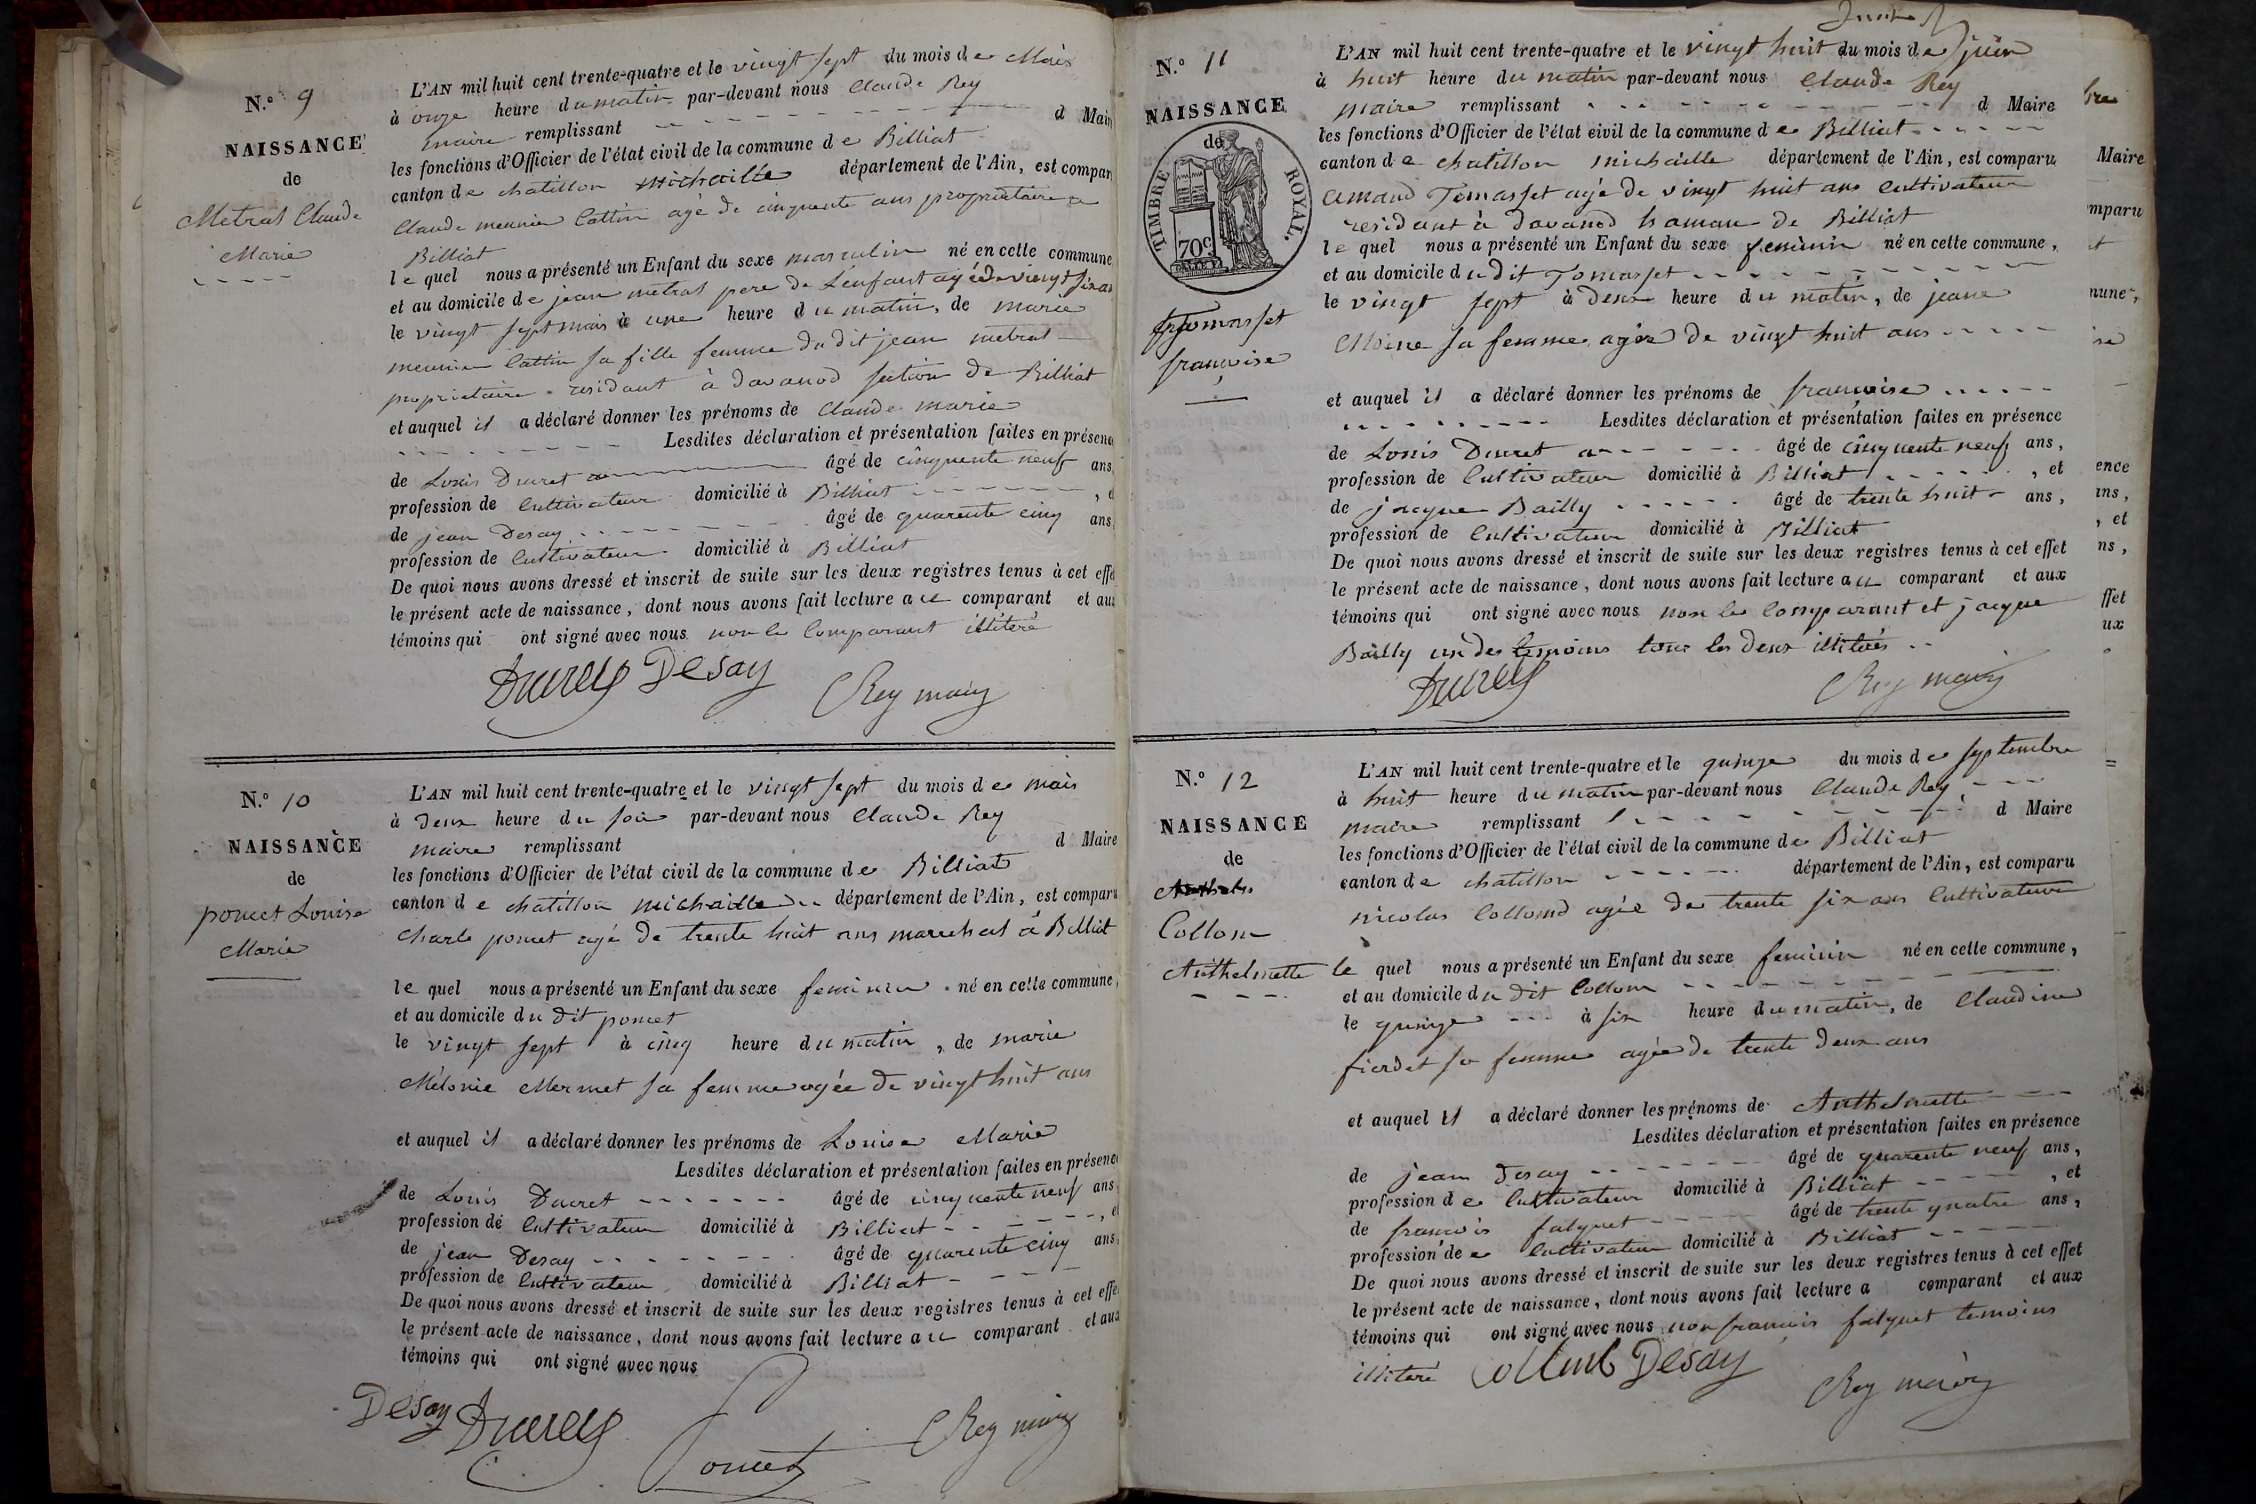 N.º 9
NAISSANCE
de
Metral Claude
Marie
L'AN mil huit cent trente-quatre et le vingt sept du mois de Mais
à onze heure du matin par-devant nous Claude Rey
maire remplissant d Mair
les fonctions d'Officier de l'état civil de la commune de Billiat
canton de chatillon michaille département de l'Ain, est compar
Claude meunier Cattin agé de cinquente ans proprietaire a
Billiat
le quel nous a présenté un Enfant du sexe masculin né en cette commune
et au domicile de jean metral pere de L'enfant agé de vingt six an
le vingt sept mais à une heure du matin, de marie
meunier Cattin sa fille femme du dit jean metral
proprietaire residant à davanod section de Billiat
et auquel il a déclaré donner les prénoms de Claude marie
Lesdites déclaration et présentation faites en présenc
de Louis Ducret âgé de cinquente neuf ans,
profession de Cultivateur domicilié à Billiat , e
de jean Desay âgé de quarente cinq ans,
profession de Cultivateur domicilié à Billiat
De quoi nous avons dressé et inscrit de suite sur les deux registres tenus à cet effe
le présent acte de naissance, dont nous avons fait lecture au comparant et aux
témoins qui ont signé avec nous non le Comparant illiteré
Ducret Desay Rey maire
N.º 10
NAISSANCE
de
poncet Louise
Marie
L'AN mil huit cent trente-quatre et le vingt sept du mois de mais
à deux heure du soir par-devant nous Claude Rey
maire remplissant d Maire
les fonctions d'Officier de l'état civil de la commune de Billiat
canton de chatillon michaille département de l'Ain, est comparu
Charle poncet agé de trente huit ans marechal à Billiat
le quel nous a présenté un Enfant du sexe feminin né en cette commune,
et au domicile du dit poncet
le vingt sept à cinq heure du matin, de marie
Mélonie Mermet sa femme agée de vingt huit ans
et auquel il a déclaré donner les prénoms de Louise Marie
Lesdites déclaration et présentation faites en présenc
de Louis Ducret âgé de cinquente neuf ans
profession de Cultivateur domicilié à Billiat , e
de jean Desay âgé de quarente cinq ans,
profession de Cultivateur domicilié à Billiat
De quoi nous avons dressé et inscrit de suite sur les deux registres tenus à cet effe
le présent acte de naissance, dont nous avons fait lecture au comparant et aux
témoins qui ont signé avec nous
Desay Ducret Poncet Rey maire
N.º 11
NAISSANCE
de
TIMBRE ROYAL.
70c
tomasset
françoise
L'AN mil huit cent trente-quatre et le vingt huit du mois de juin
à huit heure du matin par-devant nous Claude Rey
maire remplissant d Maire
les fonctions d'Officier de l'état civil de la commune de Billiat
canton de chatillon michaille département de l'Ain, est comparu
amand Tomasset agé de vingt huit ans Cultivateur
residant à davanod hamau de Billiat
le quel nous a présenté un Enfant du sexe feminin né en cette commune,
et au domicile du dit Tomasset
le vingt sept à deux heure du matin, de jeane
Moine sa femme agée de vingt huit ans
et auquel il a déclaré donner les prénoms de françoise
Lesdites déclaration et présentation faites en présence
de Louis Ducret âgé de cinquente neuf ans,
profession de Cultivateur domicilié à Billiat , et
de jacque Bailly âgé de trente huit ans,
profession de Cultivateur domicilié à Billiat
De quoi nous avons dressé et inscrit de suite sur les deux registres tenus à cet effet
le présent acte de naissance, dont nous avons fait lecture au comparant et aux
témoins qui ont signé avec nous non le Comparant et jacque
Bailly un des temoins tous les deux illiterés
Ducret Rey maire
N.º 12
NAISSANCE
de
Collom
Anthelmette
L'AN mil huit cent trente-quatre et le quinze du mois de septembre
à huit heure du matin par-devant nous Claude Rey
maire remplissant d Maire
les fonctions d'Officier de l'état civil de la commune de Billiat
canton de chatillon département de l'Ain, est comparu
nicolas Collomd agée de trente six ans Cultivateur
le quel nous a présenté un Enfant du sexe feminin né en cette commune,
et au domicile du dit Collom
le quinze à six heure du matin, de Claudine
fierdet sa femme agée de trente deux ans
et auquel il a déclaré donner les prénoms de Anthelmette
Lesdites déclaration et présentation faites en présence
de jean Desay âgé de quarente neuf ans,
profession de Cultivateur domicilié à Billiat , et
de françois falquet âgé de trente quatre ans,
profession de Cultivateur domicilié à Billiat
De quoi nous avons dressé et inscrit de suite sur les deux registres tenus à cet effet
le présent acte de naissance, dont nous avons fait lecture a comparant et aux
témoins qui ont signé avec nous non françois falquet temoins
illiteré Collomb Desay Rey maire
Maire
mparu
nune,
ence
ans,
, et
ns,
ffet
ux